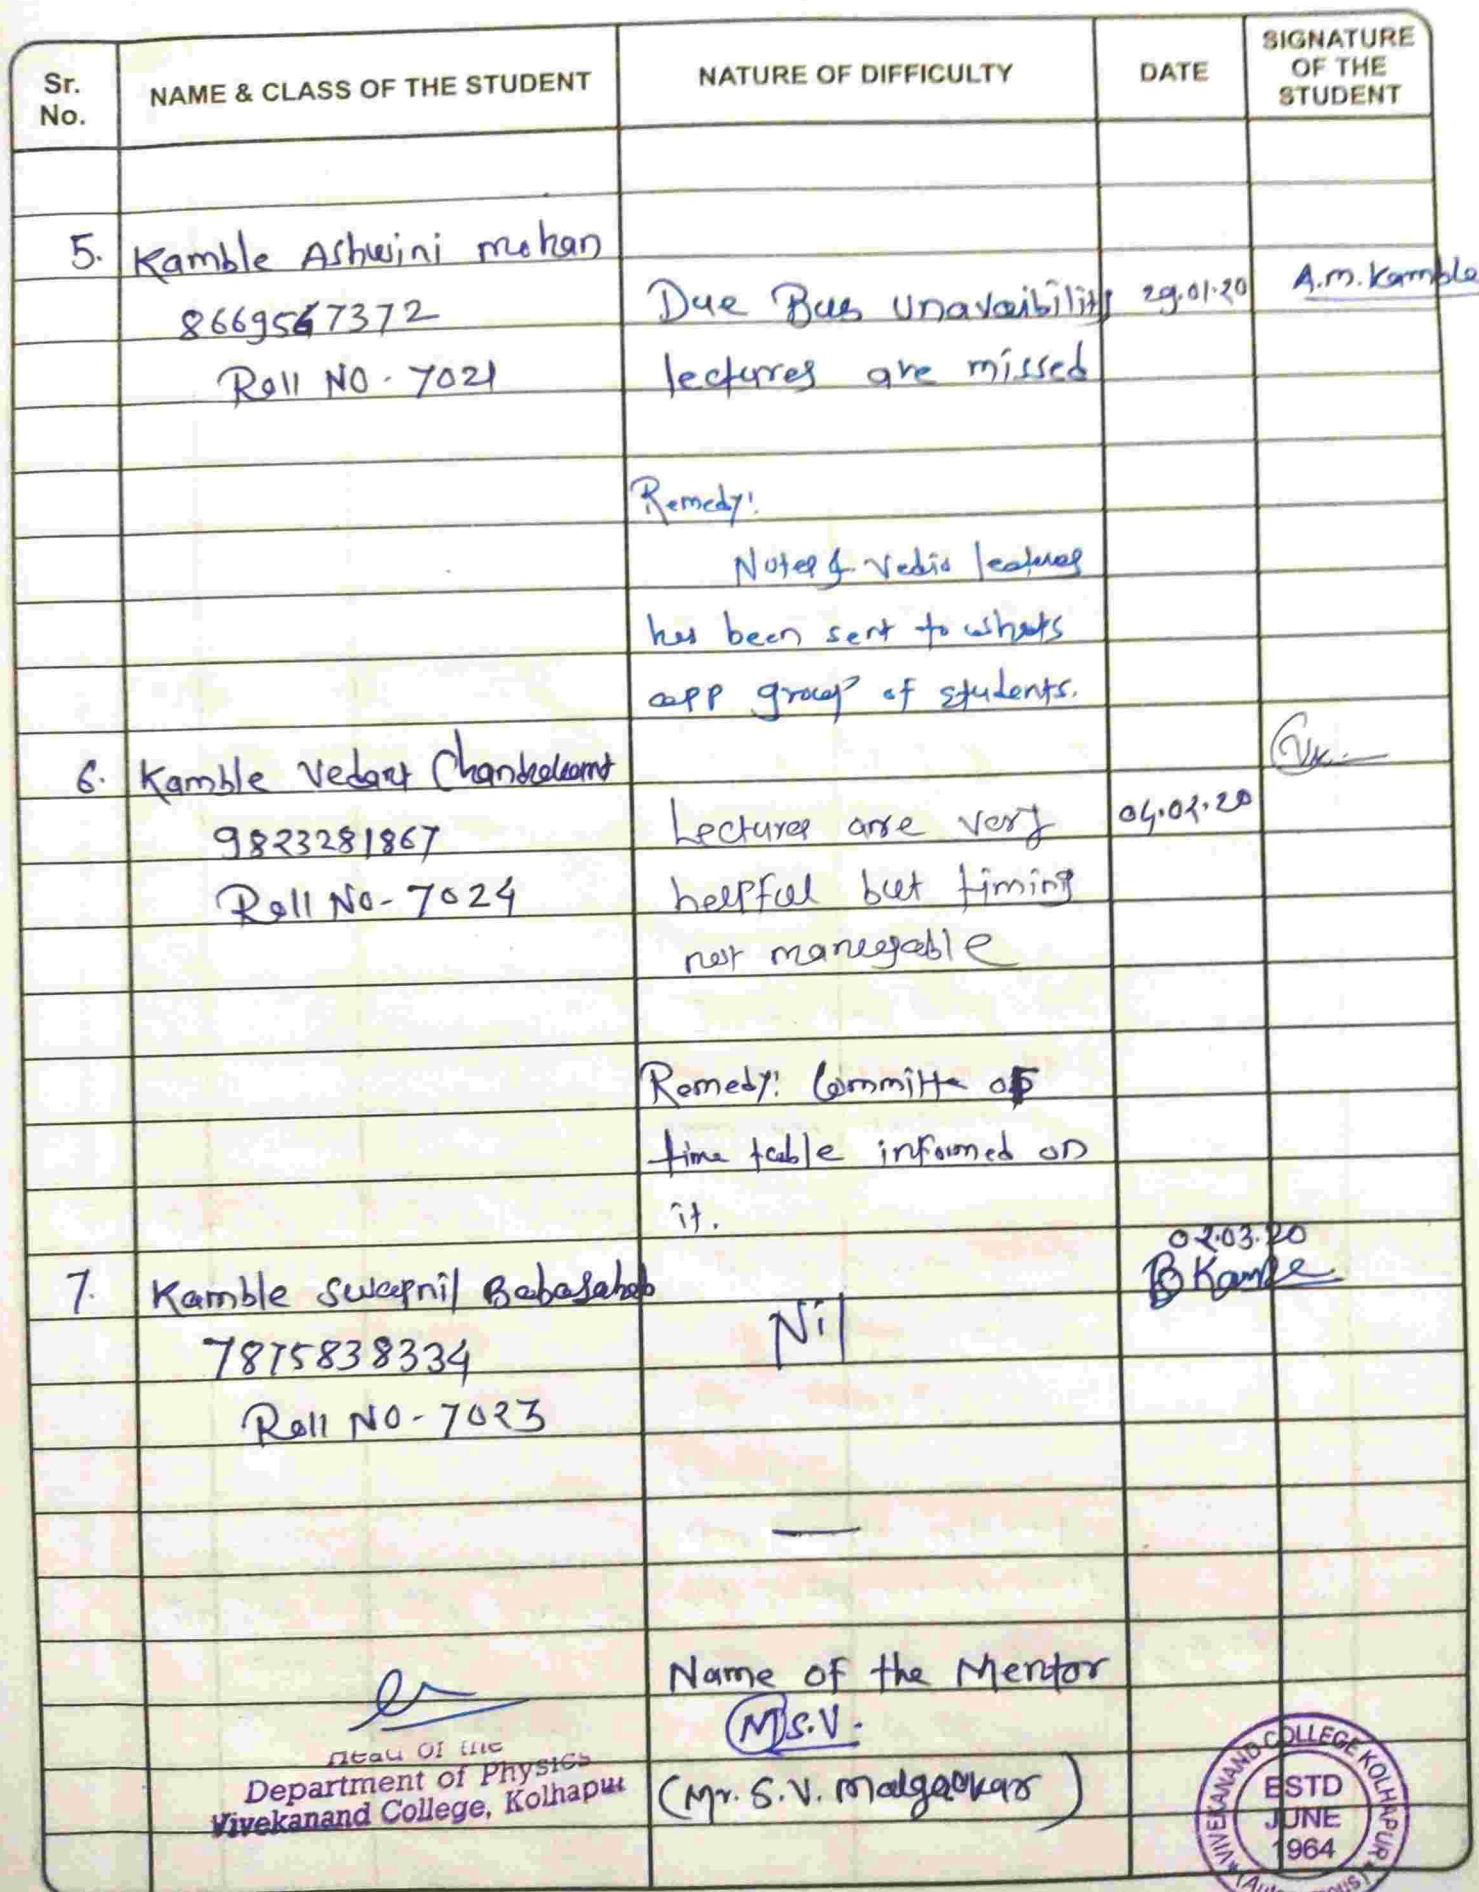 Sr. No.
NAME & CLASS OF THE STUDENT
NATURE OF DIFFICULTY
DATE
SIGNATURE OF THE STUDENT
5. Kamble Ashwini mohan
8669567372
Roll NO - 7021
Due Bus unavaibility 29.01.20 A.m. Kamble
lectures are missed
Remedy:
Notes & Vedio lectures
has been sent to whats
app group of students.
6. Kamble Vedant Chandrakant
9823281867
Roll No - 7024
Lectures are very 04.02.20
helpful but timing
not manegable
Remedy: Committe of
time table informed on
it.
7. Kamble Swapnil Babasaheb
7875838334
Roll NO - 7023
Nil
02.03.20
B Kamble
Name of the Mentor
M S.V.
(Mr. S.V. Malgaokar)
Head Of the
Department of Physics
Vivekanand College, Kolhapur
VIVEKANAND COLLEGE KOLHAPUR
ESTD
JUNE
1964